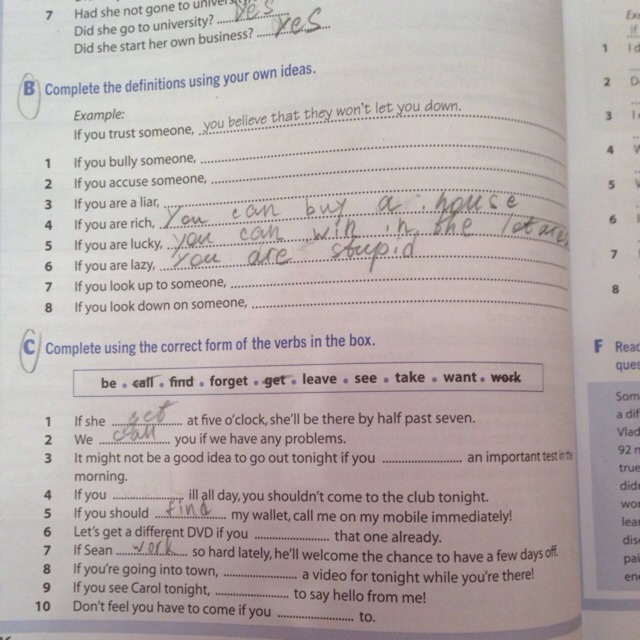 7 Had she not gone to university? yes
Did she go to university? yes
Did she start her own business? yes
B Complete the definitions using your own ideas.
Example:
If you trust someone, you believe that they won't let you down.
1 If you bully someone,
2 If you accuse someone,
3 If you are a liar,
4 If you are rich, You can buy a house
5 If you are lucky, you can win in the
6 If you are lazy, You are stupid
7 If you look up to someone,
8 If you look down on someone,
C Complete using the correct form of the verbs in the box.
be • call • find • forget • get • leave • see • take • want • work
1 If she get at five o'clock, she'll be there by half past seven.
2 We call you if we have any problems.
3 It might not be a good idea to go out tonight if you an important test in the
morning.
4 If you ill all day, you shouldn't come to the club tonight.
5 If you should find my wallet, call me on my mobile immediately!
6 Let's get a different DVD if you that one already.
7 If Sean work so hard lately, he'll welcome the chance to have a few days off.
8 If you're going into town, a video for tonight while you're there!
9 If you see Carol tonight, to say hello from me!
10 Don't feel you have to come if you to.
1
2
3
4
5
6
7
8
F Read
ques
Som
a dif
Vlad
92 n
true
did
wor
lear
dis
pai
en